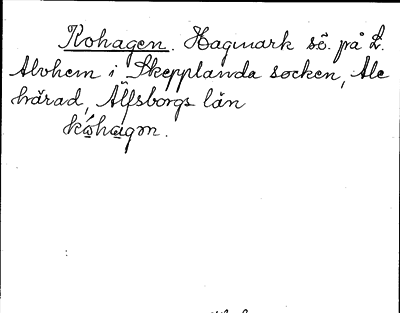 Kohagen. Hagmark sö. på L.
Alvhem i Skepplanda socken, Ale
härad, Älfsborgs län
kóhàgən.